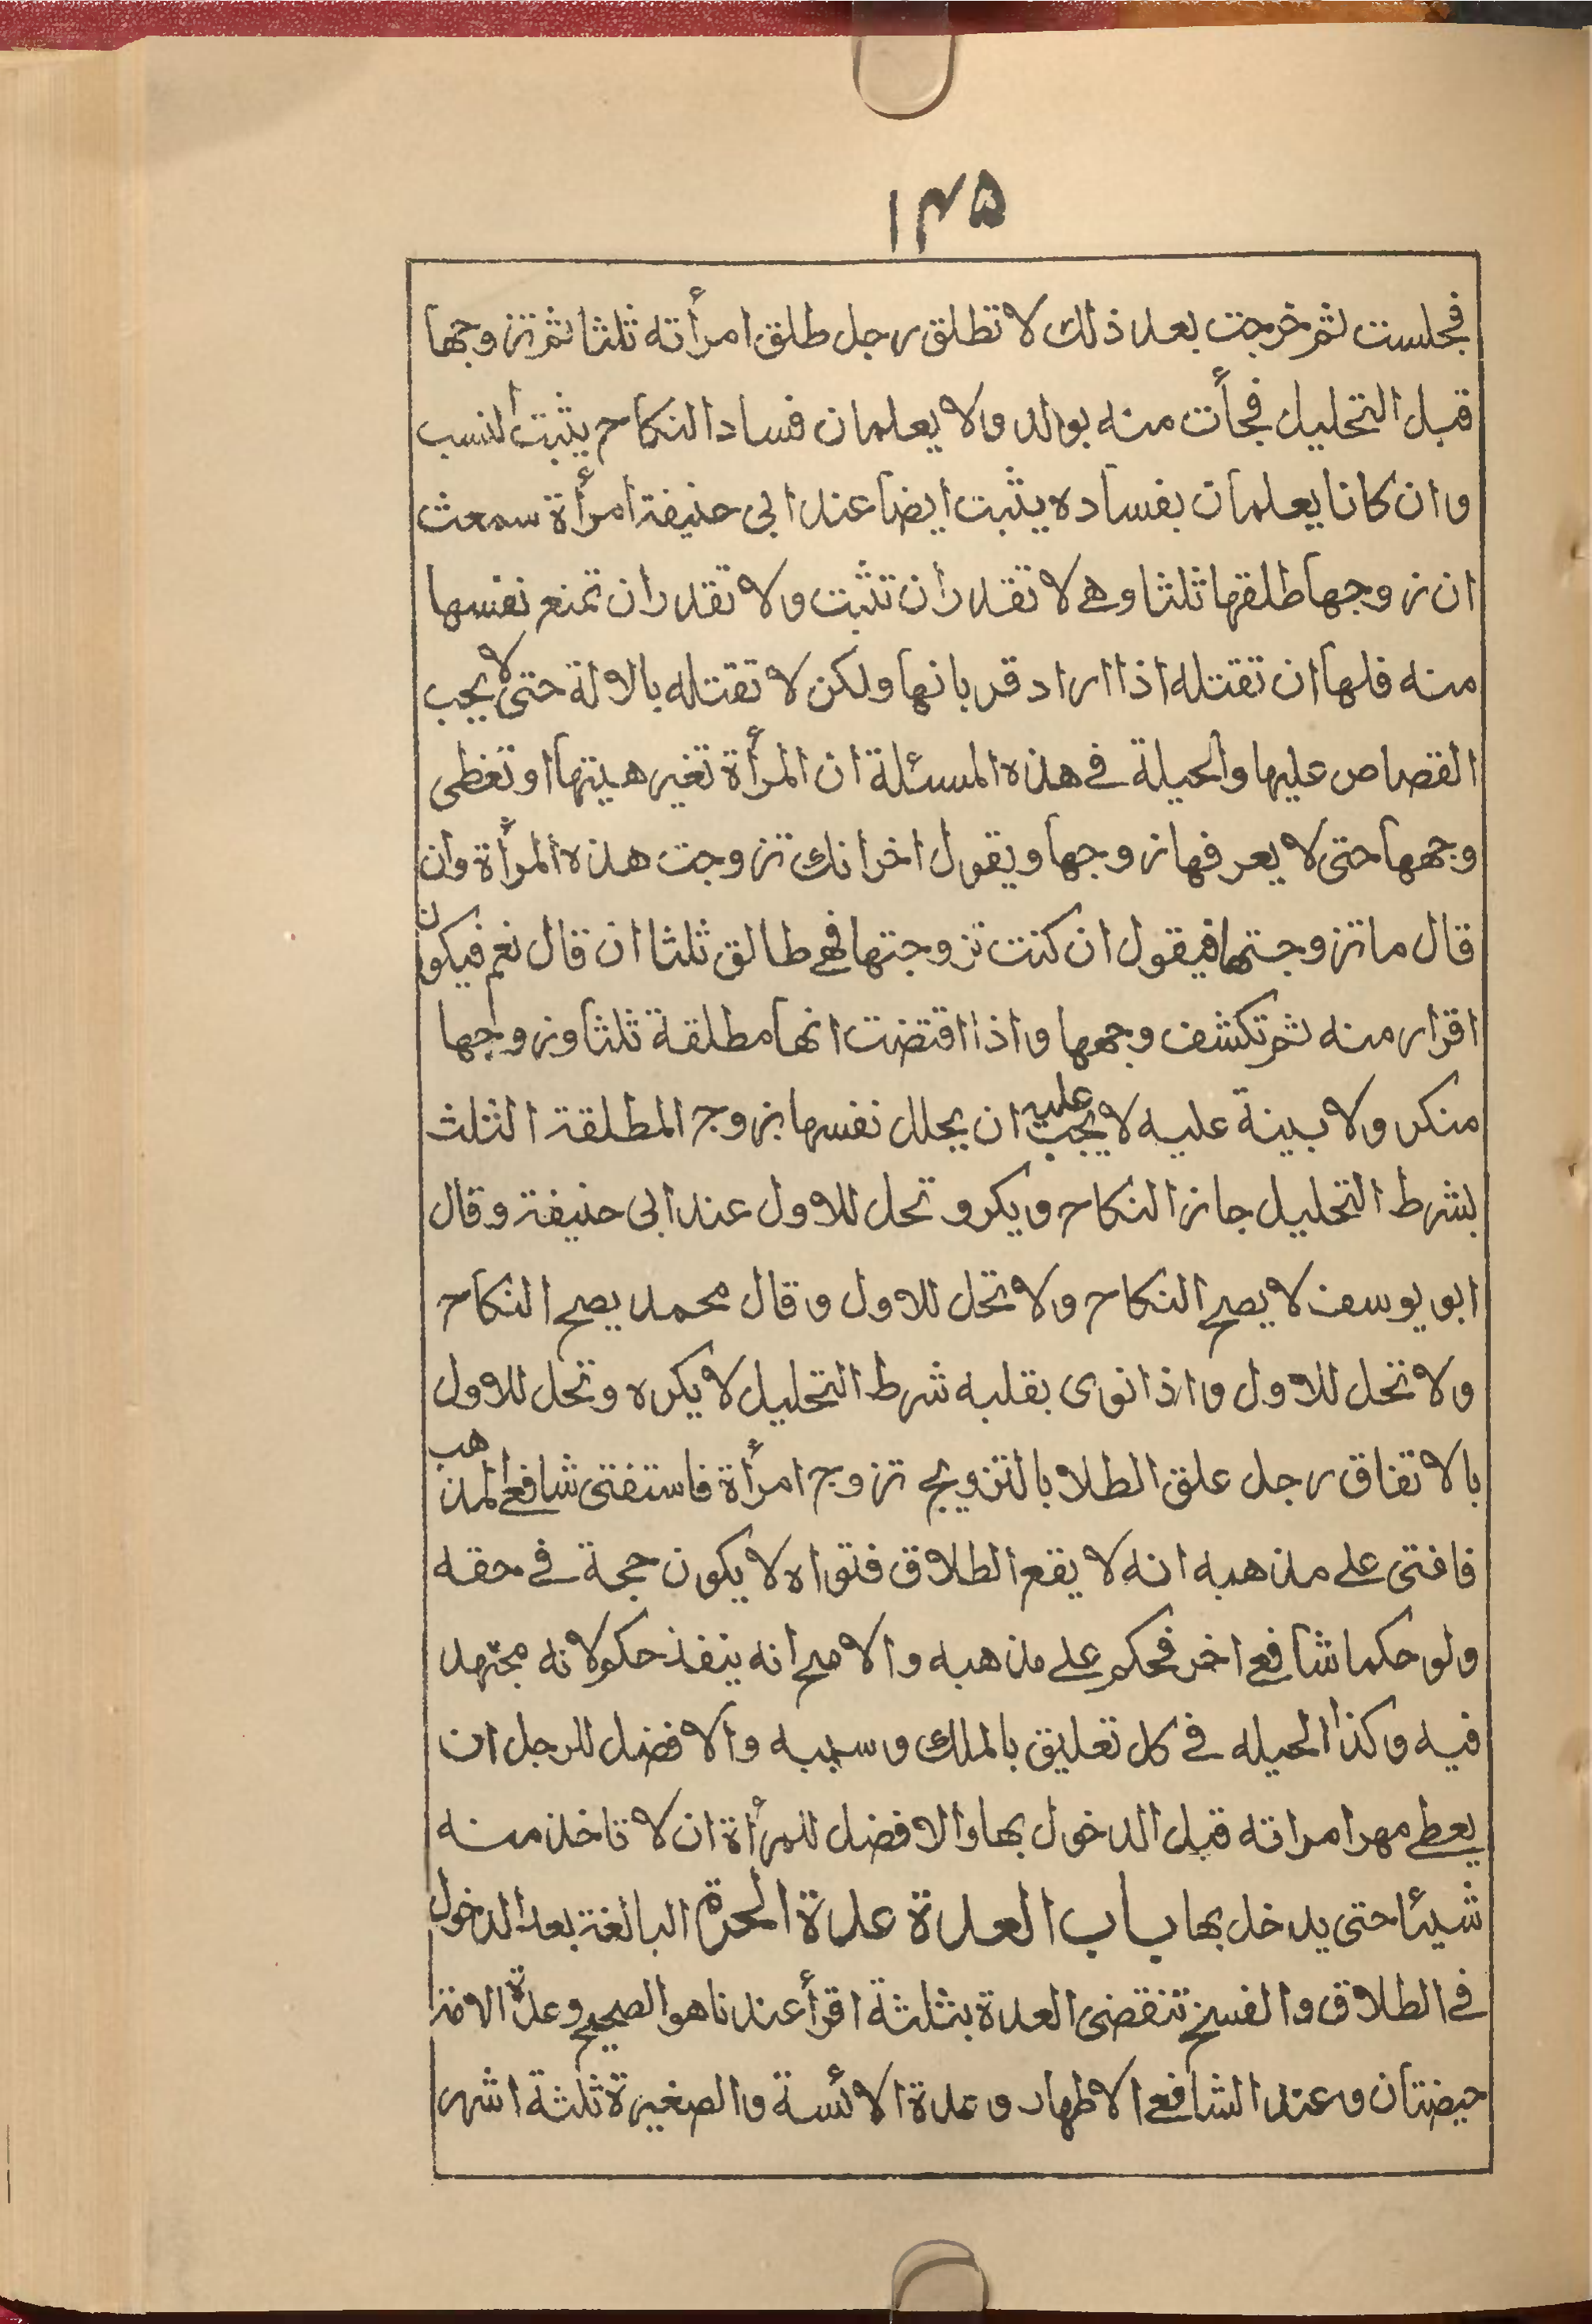 ۱۴۵
فجلست ثم خرجت بعد ذلك لا تطلق رجل طلق امرأته ثلثا ثم تزوجها
قبل التحليل فجأت منه بولد ولا يعلمان فساد النكاح يثبت النسب
وان كانا يعلمان بفساده يثبت ايضا عند ابى حنيفة امرأة سمعت
ان زوجها طلقها ثلثا وهے لا تقدر ان تثبت ولا تقدر ان تمنع نفسها
منه فلها ان تقتله اذا اراد قربانها ولكن لا تقتله بالالة حتى لا يجب
القصاص عليها والحيلة فے هذه المسئلة ان المرأة تغير هيئتها او تغطى
وجهها حتى لا يعرفها زوجها ويقول اخر انك تزوجت هذه المرأة وان
قال ما تزوجتها فيقول ان كنت تزوجتها فهے طالق ثلثا ان قال نعم فيكون
اقرار منه ثم تكشف وجهها واذا اقتضت انها مطلقة ثلثا وزوجها
منكر ولا بينة عليه لا يجب عليه ان يحلل نفسها بزوج المطلقة الثلث
بشرط التحليل جاز النكاح ويكره وتحل للاول عند ابى حنيفة وقال
ابو يوسف لا يصح النكاح ولا تحل للاول وقال محمد يصح النكاح
ولا تحل للاول واذا نوى بقلبه شرط التحليل لا يكره وتحل للاول
بالاتفاق رجل علق الطلا بالتزويج تزوج امرأة فاستفتى شافعے المذهب
فافتى علے مذهبه انه لا يقع الطلاق فتواه لا يكون حجة فے حقه
ولو حكما شافعے اخر فحكم علے مذهبه والاصح انه ينفذ حكمه لانه مجتهد
فيه وكذا الحيله فے كل تعليق بالملك وسببه والافضل للرجل ان
يعطے مهر امراته قبل الدخول بها والافضل للمرأة ان لا تاخذ منه
شيئا حتى يدخل بها باب العدة عدة الحرة البالغة بعد الدخول
فے الطلاق والفسخ تنقضى العدة بثلثة اقرأ عندنا هو الصحيح وعدة الامة
حيضتان وعند الشافعے الاطهار وعدة الائسة والصغيرة ثلثة اشهر